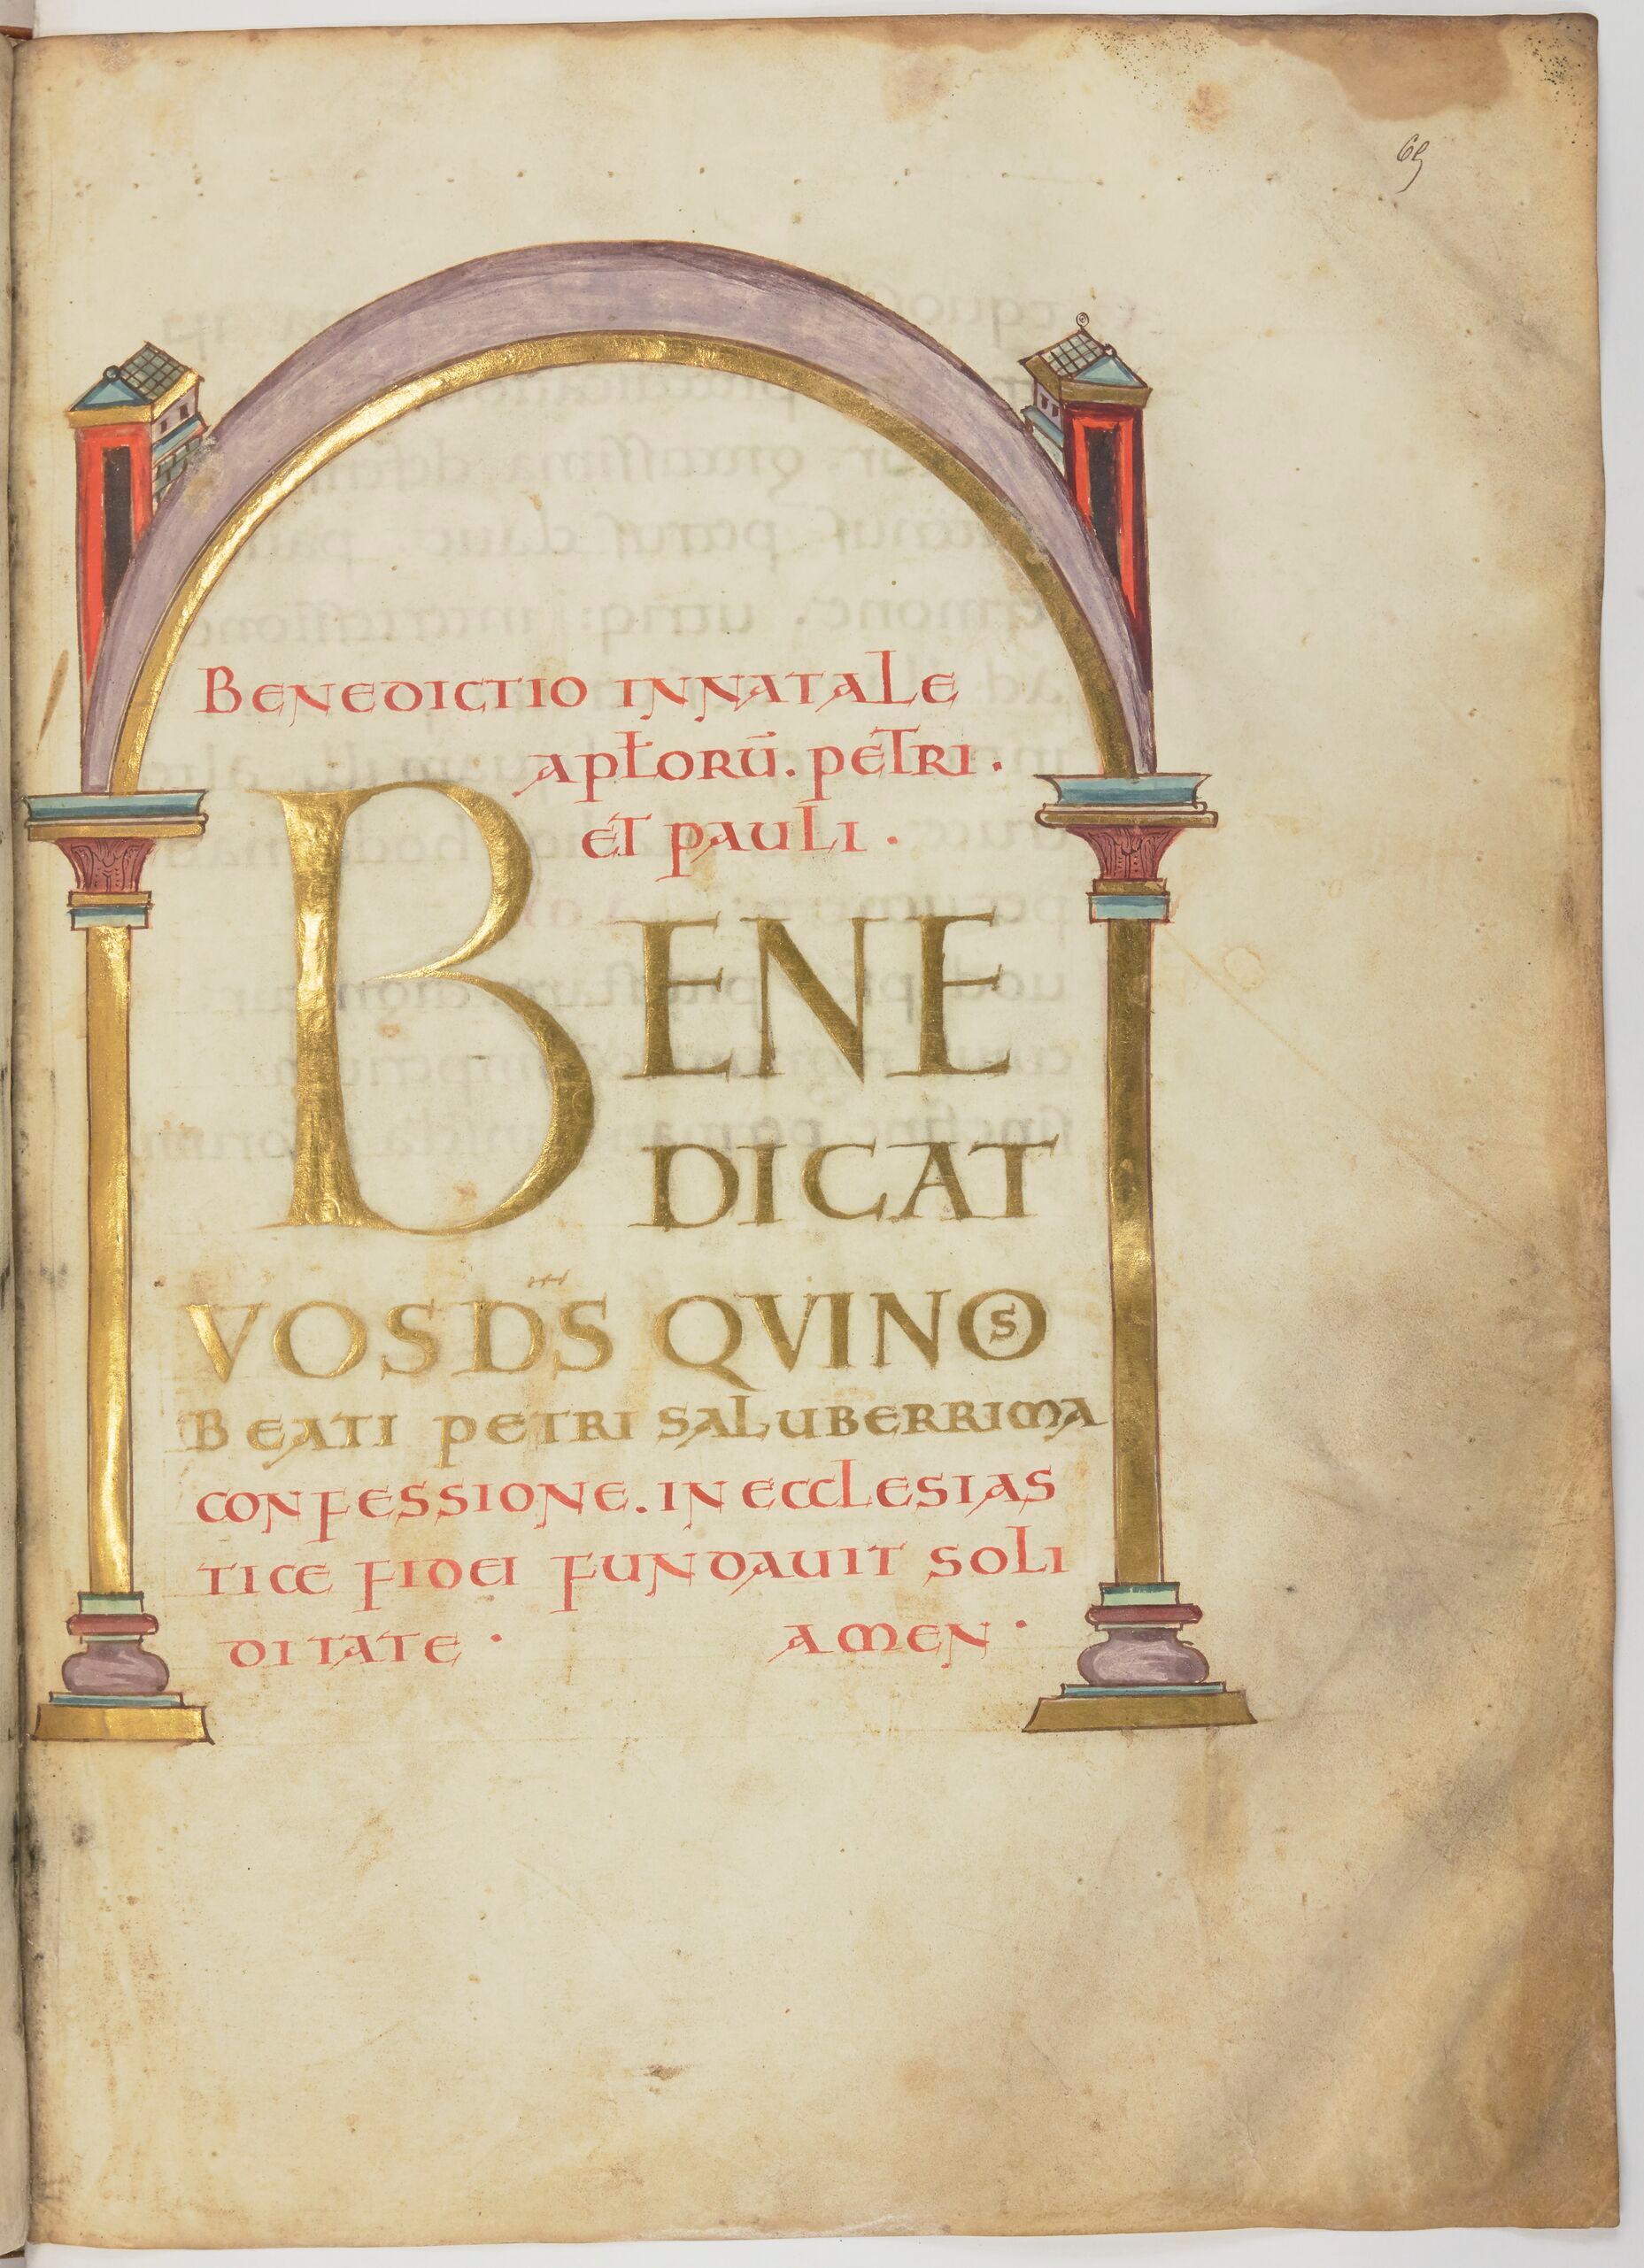 69
BENEDICTIO IN NATALE
APŁORŪ. PETRI.
ET PAULI.
BENE
DICAT
VOS DS̄ QVI NOS
BEATI PETRI SALUBERRIMA
CONFESSIONE. IN ECCLESIAS
TICE FIDEI FUNDAUIT SOLI
DITATE. AMEN.